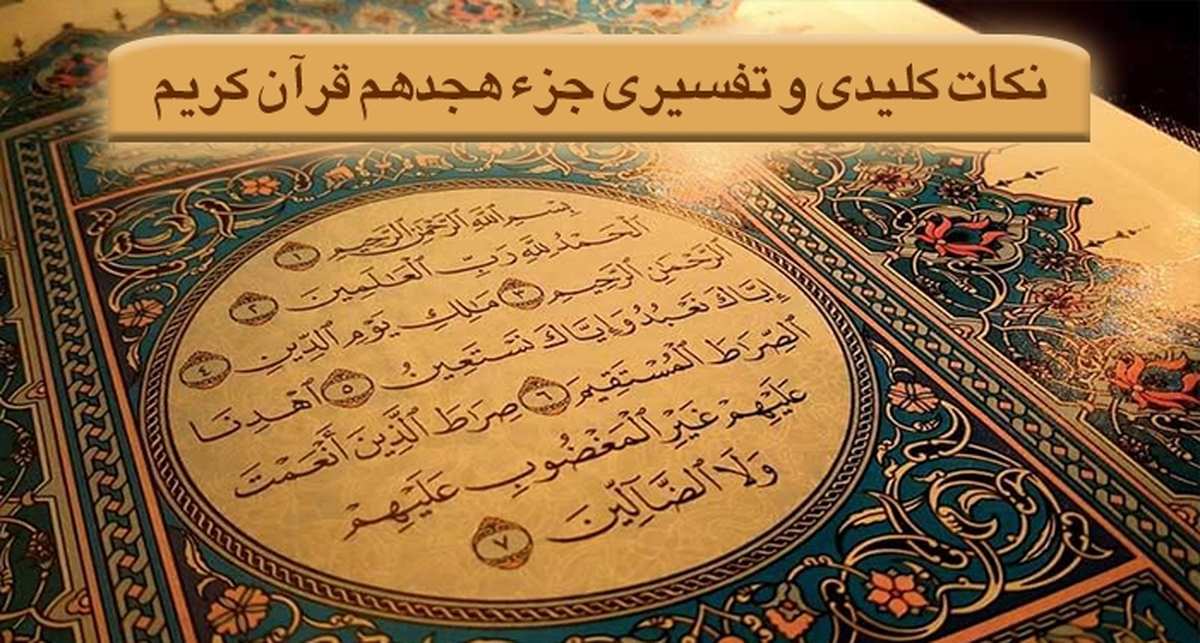 نکات کلیدی و تفسیری جزء هجدهم قرآن کریم
بِسْمِ ٱللَّهِ ٱلرَّحْمَٰنِ ٱلرَّحِيمِ ١
ٱلْحَمْدُ لِلَّهِ رَبِّ ٱلْعَٰلَمِينَ ٢
ٱلرَّحْمَٰنِ ٱلرَّحِيمِ ٣ مَٰلِكِ يَوْمِ ٱلدِّينِ ٤
إِيَّاكَ نَعْبُدُ وَإِيَّاكَ نَسْتَعِينُ ٥ ٱهْدِنَا
ٱلصِّرَٰطَ ٱلْمُسْتَقِيمَ ٦ صِرَٰطَ ٱلَّذِينَ أَنْعَمْتَ
عَلَيْهِمْ غَيْرِ ٱلْمَغْضُوبِ عَلَيْهِمْ
وَلَا ٱلضَّآلِّينَ ٧